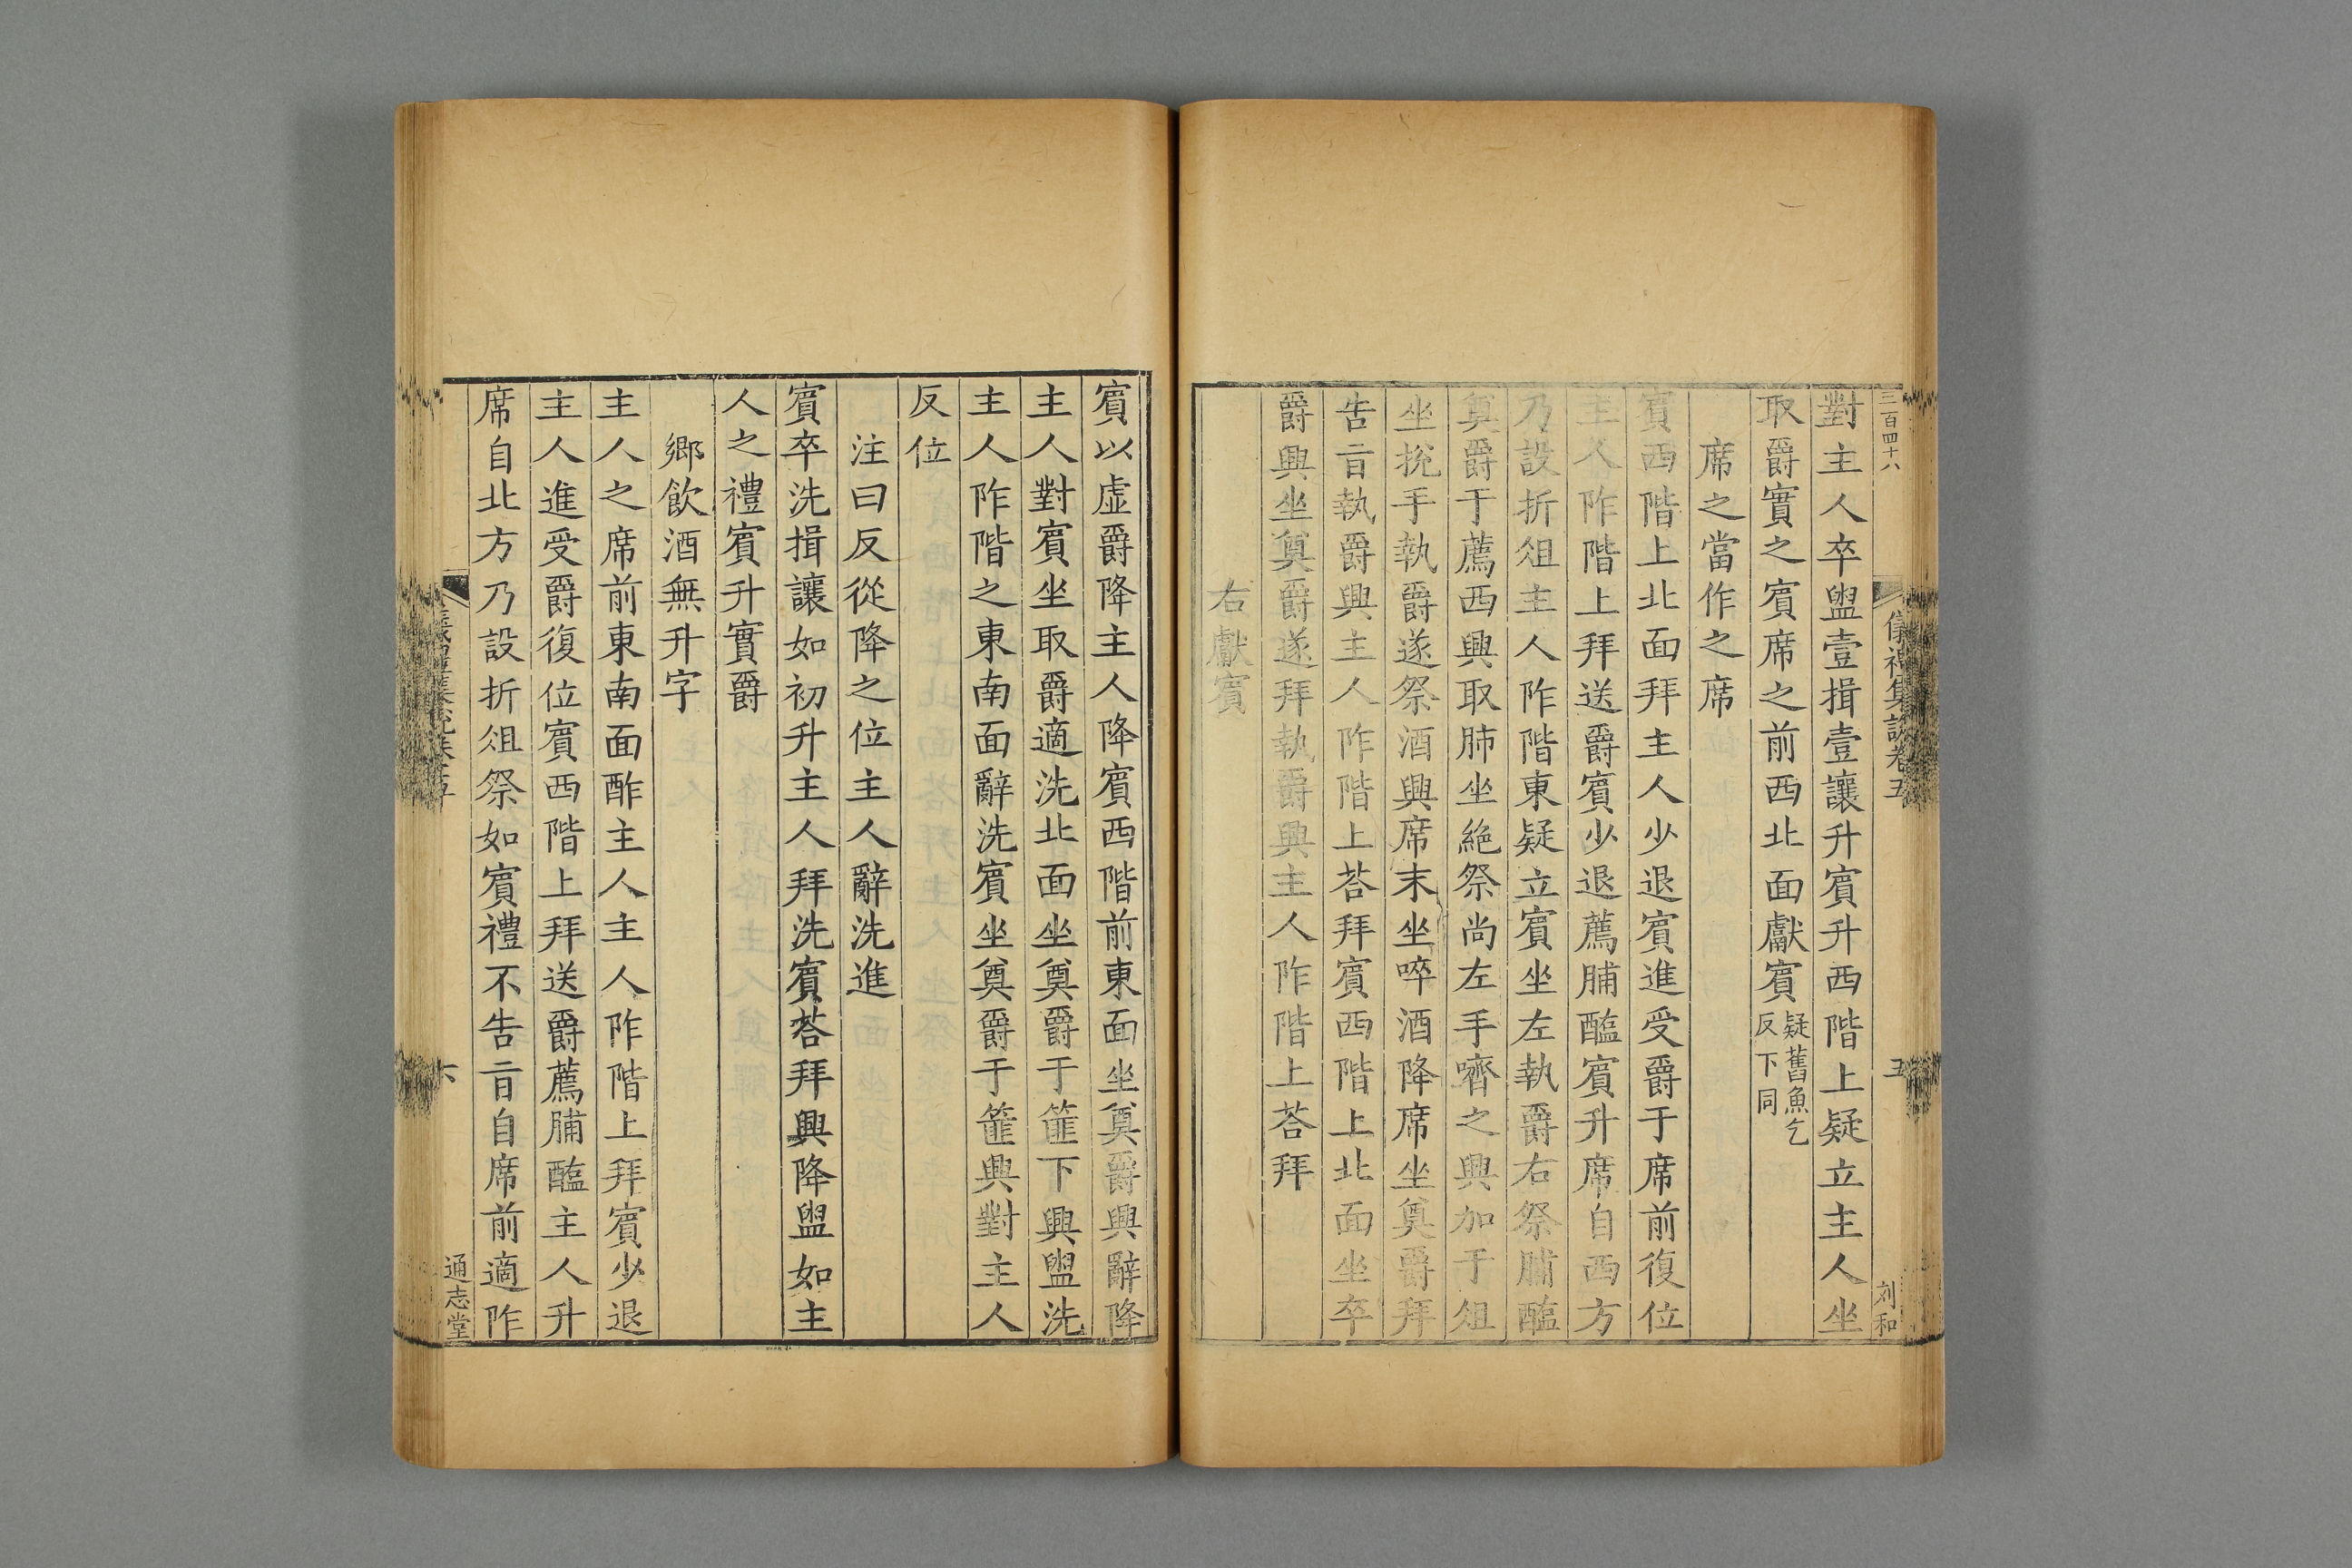 三百四十八
儀禮集說卷五
五
刘和
對主人卒盥壹揖壹讓升賔升西階上疑立主人坐
取爵實之賔席之前西北面獻賔疑舊魚乞反下同
席之當作之席
賔西階上北面拜主人少退賔進受爵于席前復位
主人阼階上拜送爵賔少退薦脯醢賔升席自西方
乃設折俎主人阼階東疑立賔坐左執爵右祭脯醢
奠爵于薦西興取肺坐絶祭尚左手嚌之興加于俎
坐挩手執爵遂祭酒興席末坐啐酒降席坐奠爵拜
告旨執爵興主人阼階上荅拜賔西階上北面坐卒
爵興坐奠爵遂拜執爵興主人阼階上荅拜
右獻賔
賔以虛爵降主人降賔西階前東面坐奠爵興辭降
主人對賔坐取爵適洗北面坐奠爵于篚下興盥洗
主人阼階之東南面辭洗賔坐奠爵于篚興對主人
反位
注曰反從降之位主人辭洗進
賔卒洗揖讓如初升主人拜洗賔荅拜興降盥如主
人之禮賔升實爵
鄉飲酒無升字
主人之席前東南面酢主人主人阼階上拜賔少退
主人進受爵復位賔西階上拜送爵薦脯醢主人升
席自北方乃設折俎祭如賔禮不告旨自席前適阼
六
通志堂